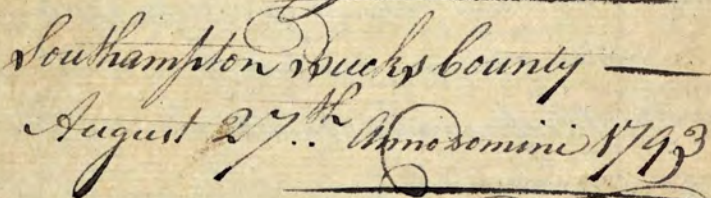 Southampton Bucks County
August 27.th Annodomini 1793